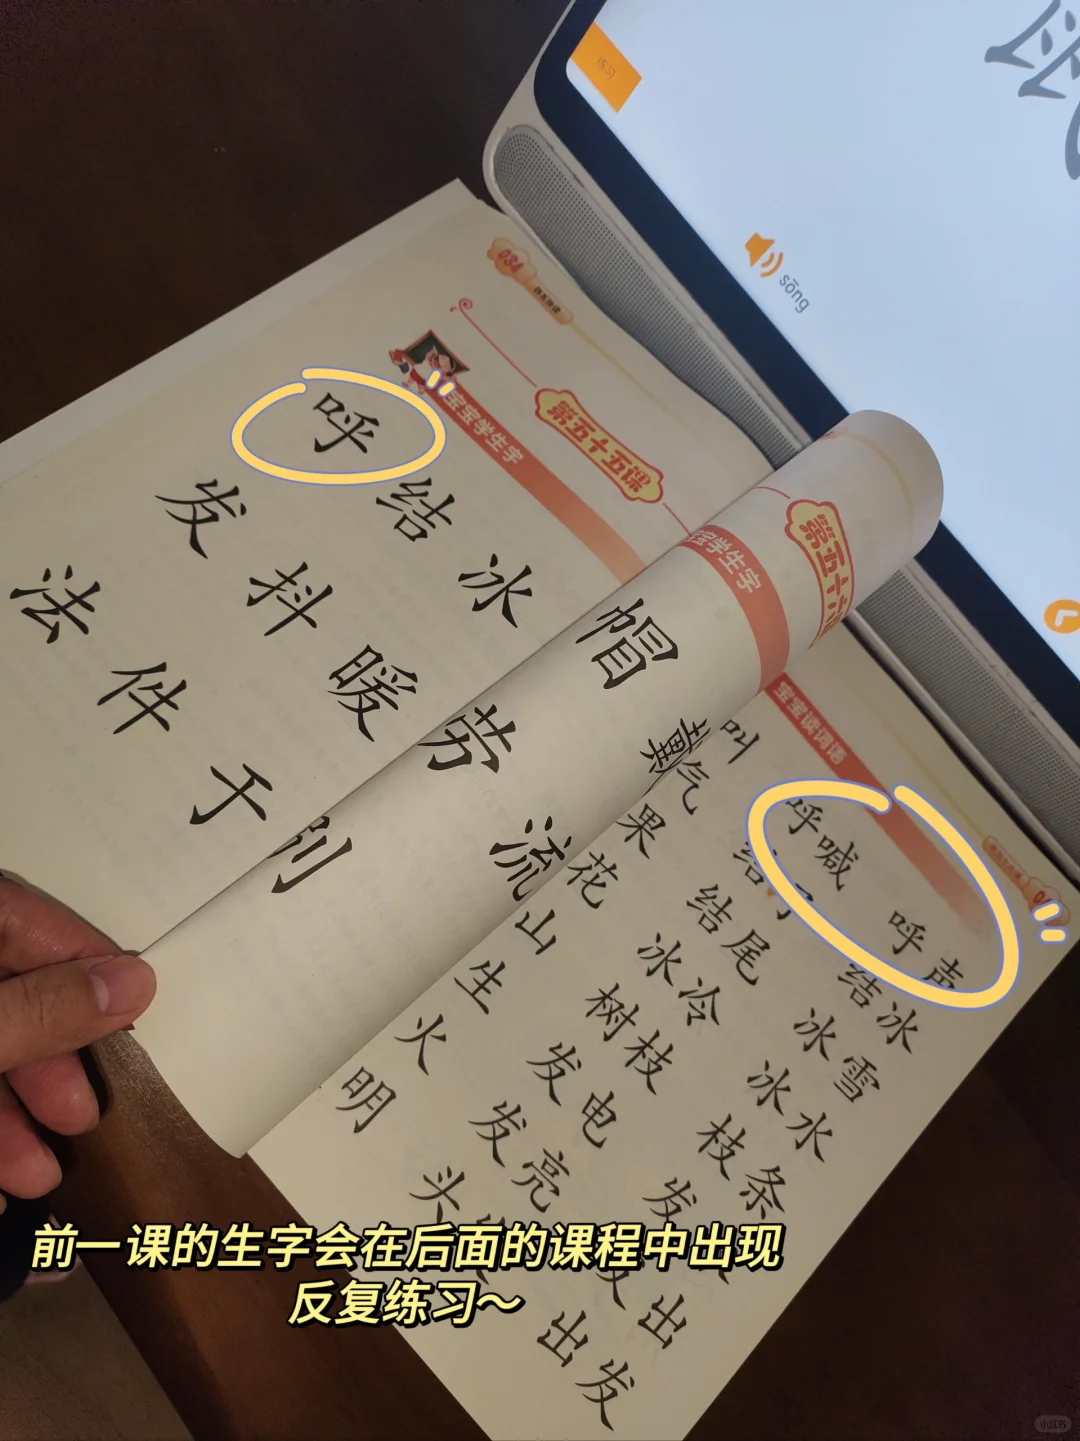 练习
sōng
034
第五十五课
宝宝学生字
呼 结 冰
发 抖 暖 劳
法 件 于 别
第五十六课
宝学生字
帽 戴
流
宝宝读词语
呼喊 呼声
结冰
结尾
冰冷 冰雪
树枝 冰水
发电 枝条
发亮 发
出
出发
叫
气
果
花
山
生
火
明
头
前一课的生字会在后面的课程中出现
反复练习～
小红书